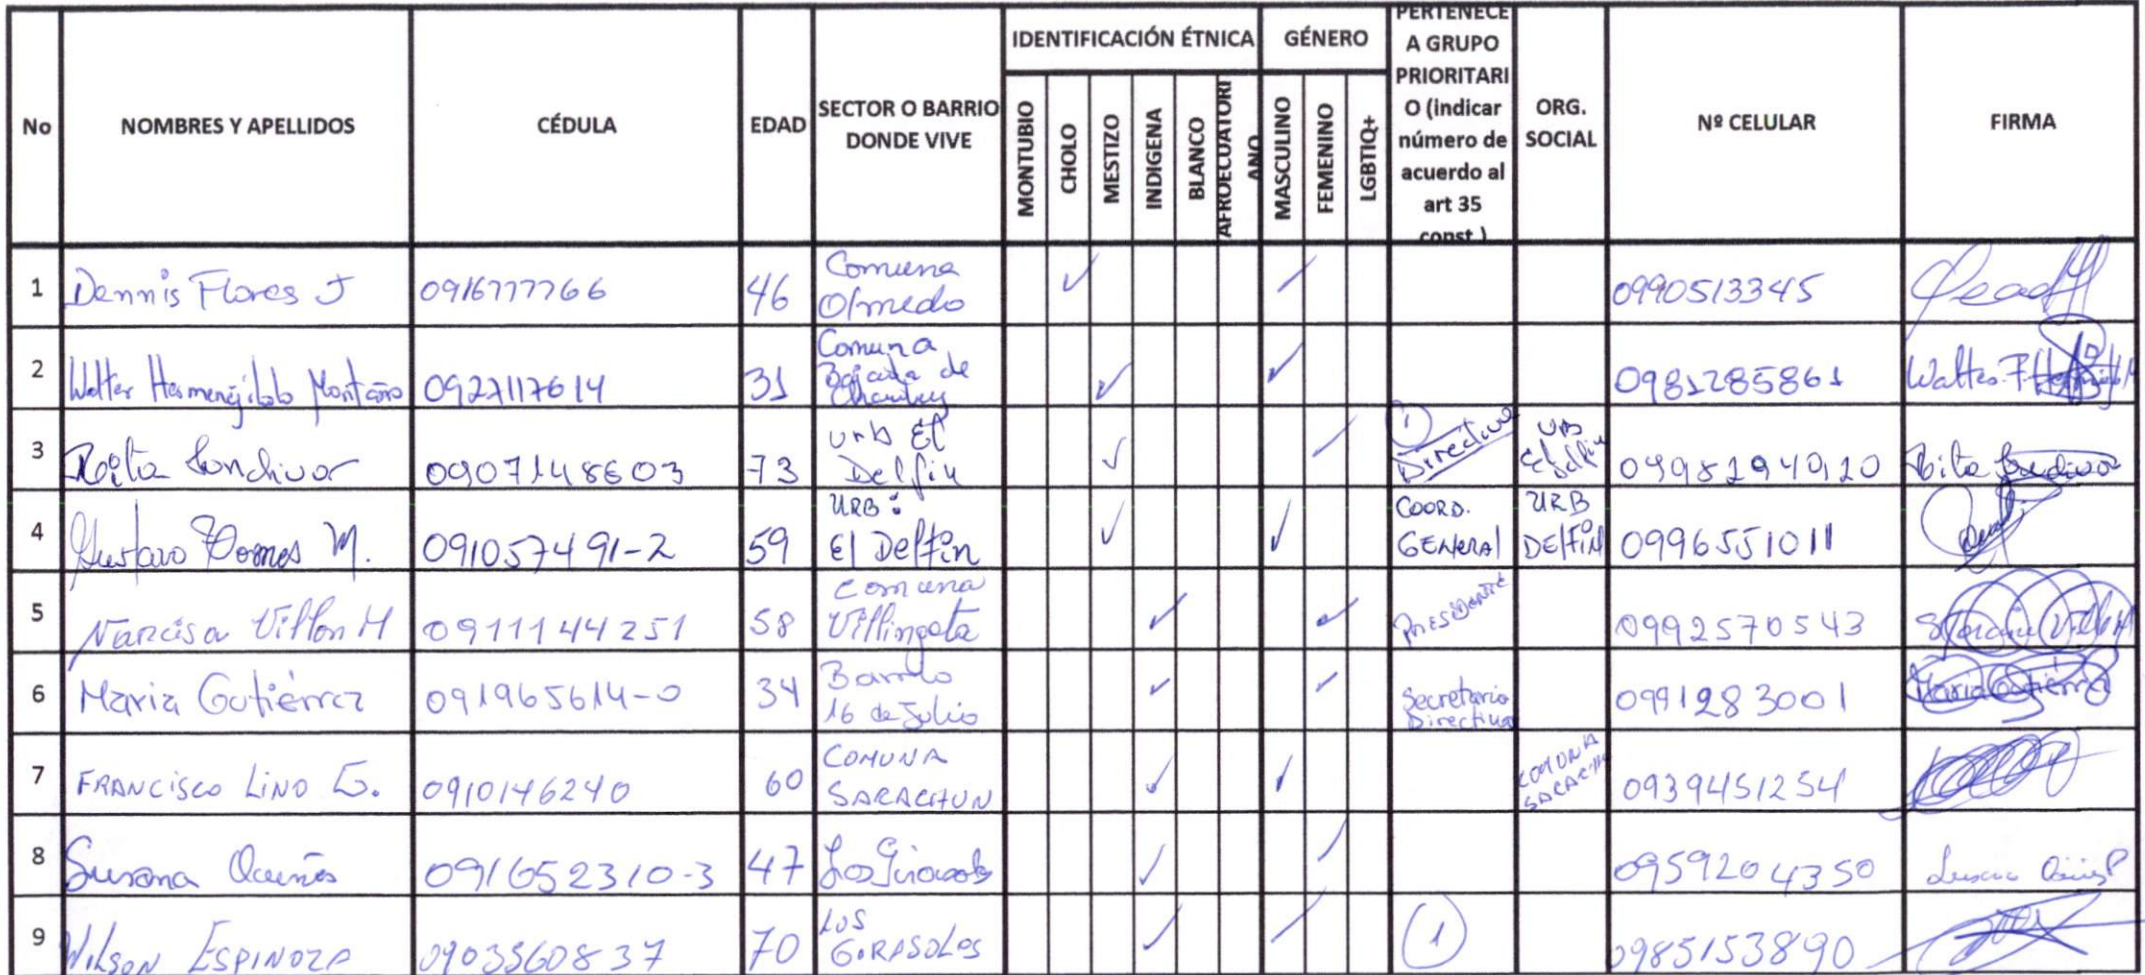 No
NOMBRES Y APELLIDOS
CÉDULA
EDAD
SECTOR O BARRIO
DONDE VIVE
IDENTIFICACIÓN ÉTNICA
MONTUBIO
CHOLO
MESTIZO
INDIGENA
BLANCO
AFROECUATORI
ANO
GÉNERO
MASCULINO
FEMENINO
LGBTIQ+
PERTENECE
A GRUPO
PRIORITARI
O (indicar
número de
acuerdo al
art 35
const.)
ORG.
SOCIAL
Nº CELULAR
FIRMA
1 Dennis Flores J 0916777766 46 Comuna
Olmedo
✓ ✓ 0990513345
2 Walter Hermenejildo Montaño 0927117614 31 Comuna
Bajada de
✓ ✓ 0981285861 Walter
3 Rita 0907148603 73 Urb El
Delfin
✓ ✓ 1
Directiva
Urb
El Delfin
Rita
4 Gustavo M. 091057491-2 59 URB:
El Delfin
✓ ✓ COORD.
GENERAL
URB
DElfiN
0996551011
5 Narcisa Villon M 0911144251 58 comuna
Villingota
✓ ✓ Presidente 0992570543
6 Maria Gutiérrez 091965614-0 34 Barrio
16 de Julio
✓ ✓ Secretaria
Directiva
0991283001 Maria Gutiérrez
7 FRANCISCO LINO G. 0910146240 60 COMUNA
SARACHUN
✓ ✓ COMUNA
0939451254
8 Susana 091652310-3 47 Los Girasoles
✓ ✓ 0959204350
9 WILSON ESPINOZA 0903560837 70 LOS
GIRASOLES
✓ ✓ 1 0985153890